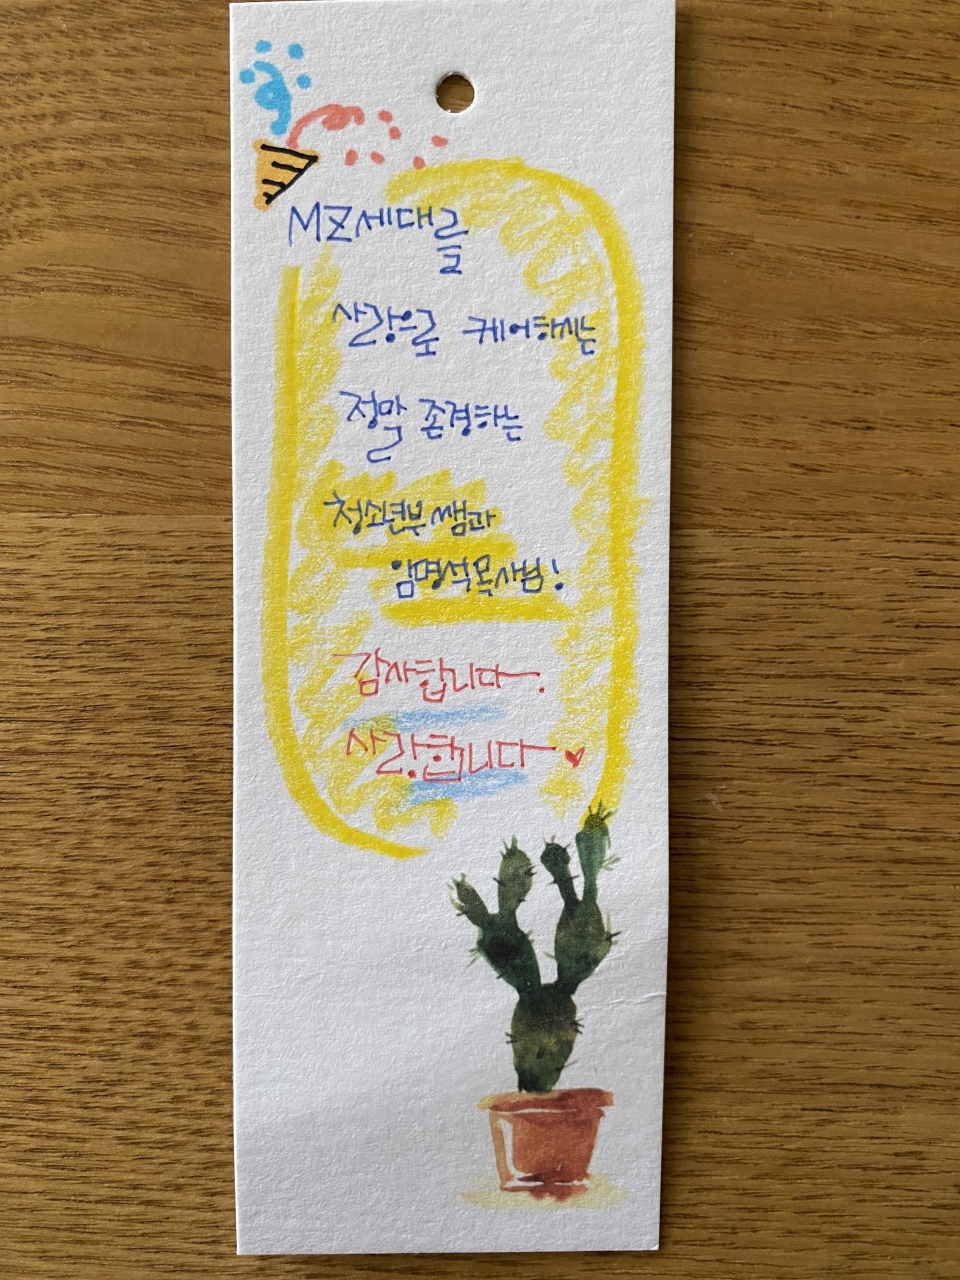 MZ세대를
사랑으로 케어하시는
정말 존경하는
청소년부 쌤과
임명석목사님!
감사합니다~.
사랑합니다~♥